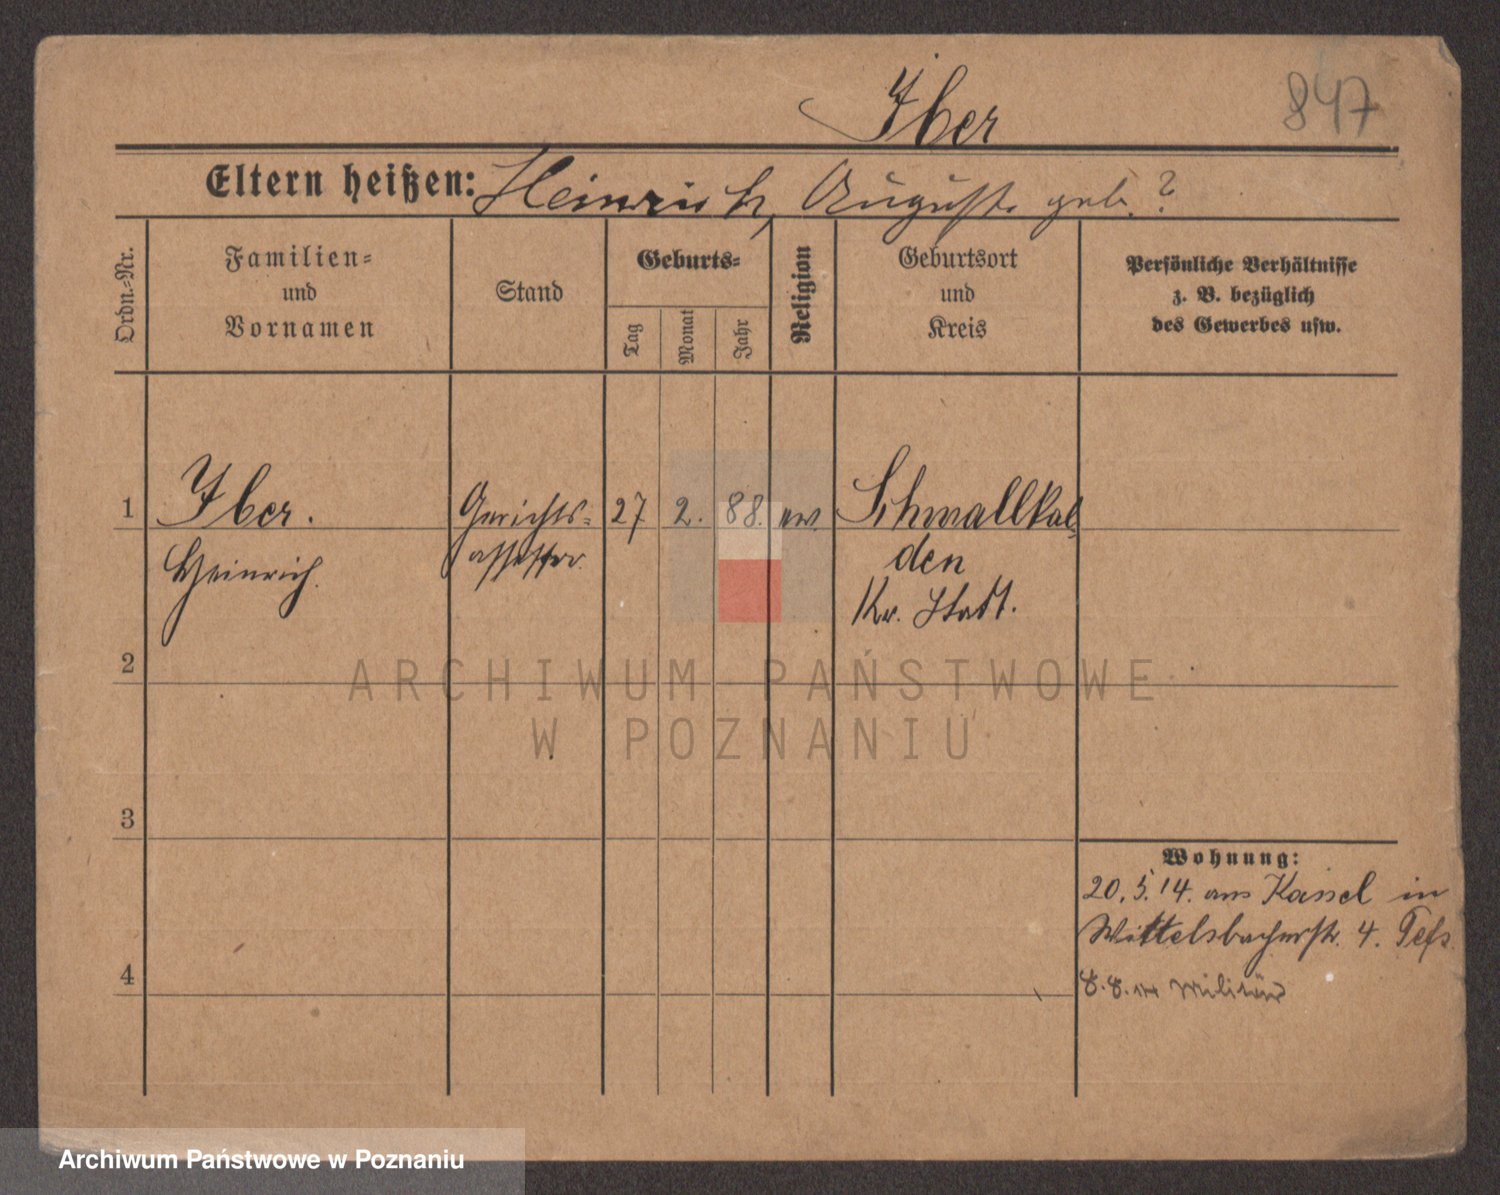 Iber
847
Eltern heißen: Heinrich, Auguste geb. ?
Ordn.-Nr.
Familien-
und
Vornamen
Stand
Geburts-
Tag
Monat
Jahr
Religion
Geburtsort
und
Kreis
Persönliche Verhältnisse
z. B. bezüglich
des Gewerbes usw.
1
Iber.
Gerichts-
27
2.
88.
ev.
Schmallkal
Heinrich.
assessor
den
Kr. Statt.
2
ARCHIWUM PAŃSTWOWE
W POZNANIU
3
Wohnung:
20.5.14. aus Kassel in
Wittelsbacherstr. 4.
4
8.8.14 Militär
Archiwum Państwowe w Poznaniu